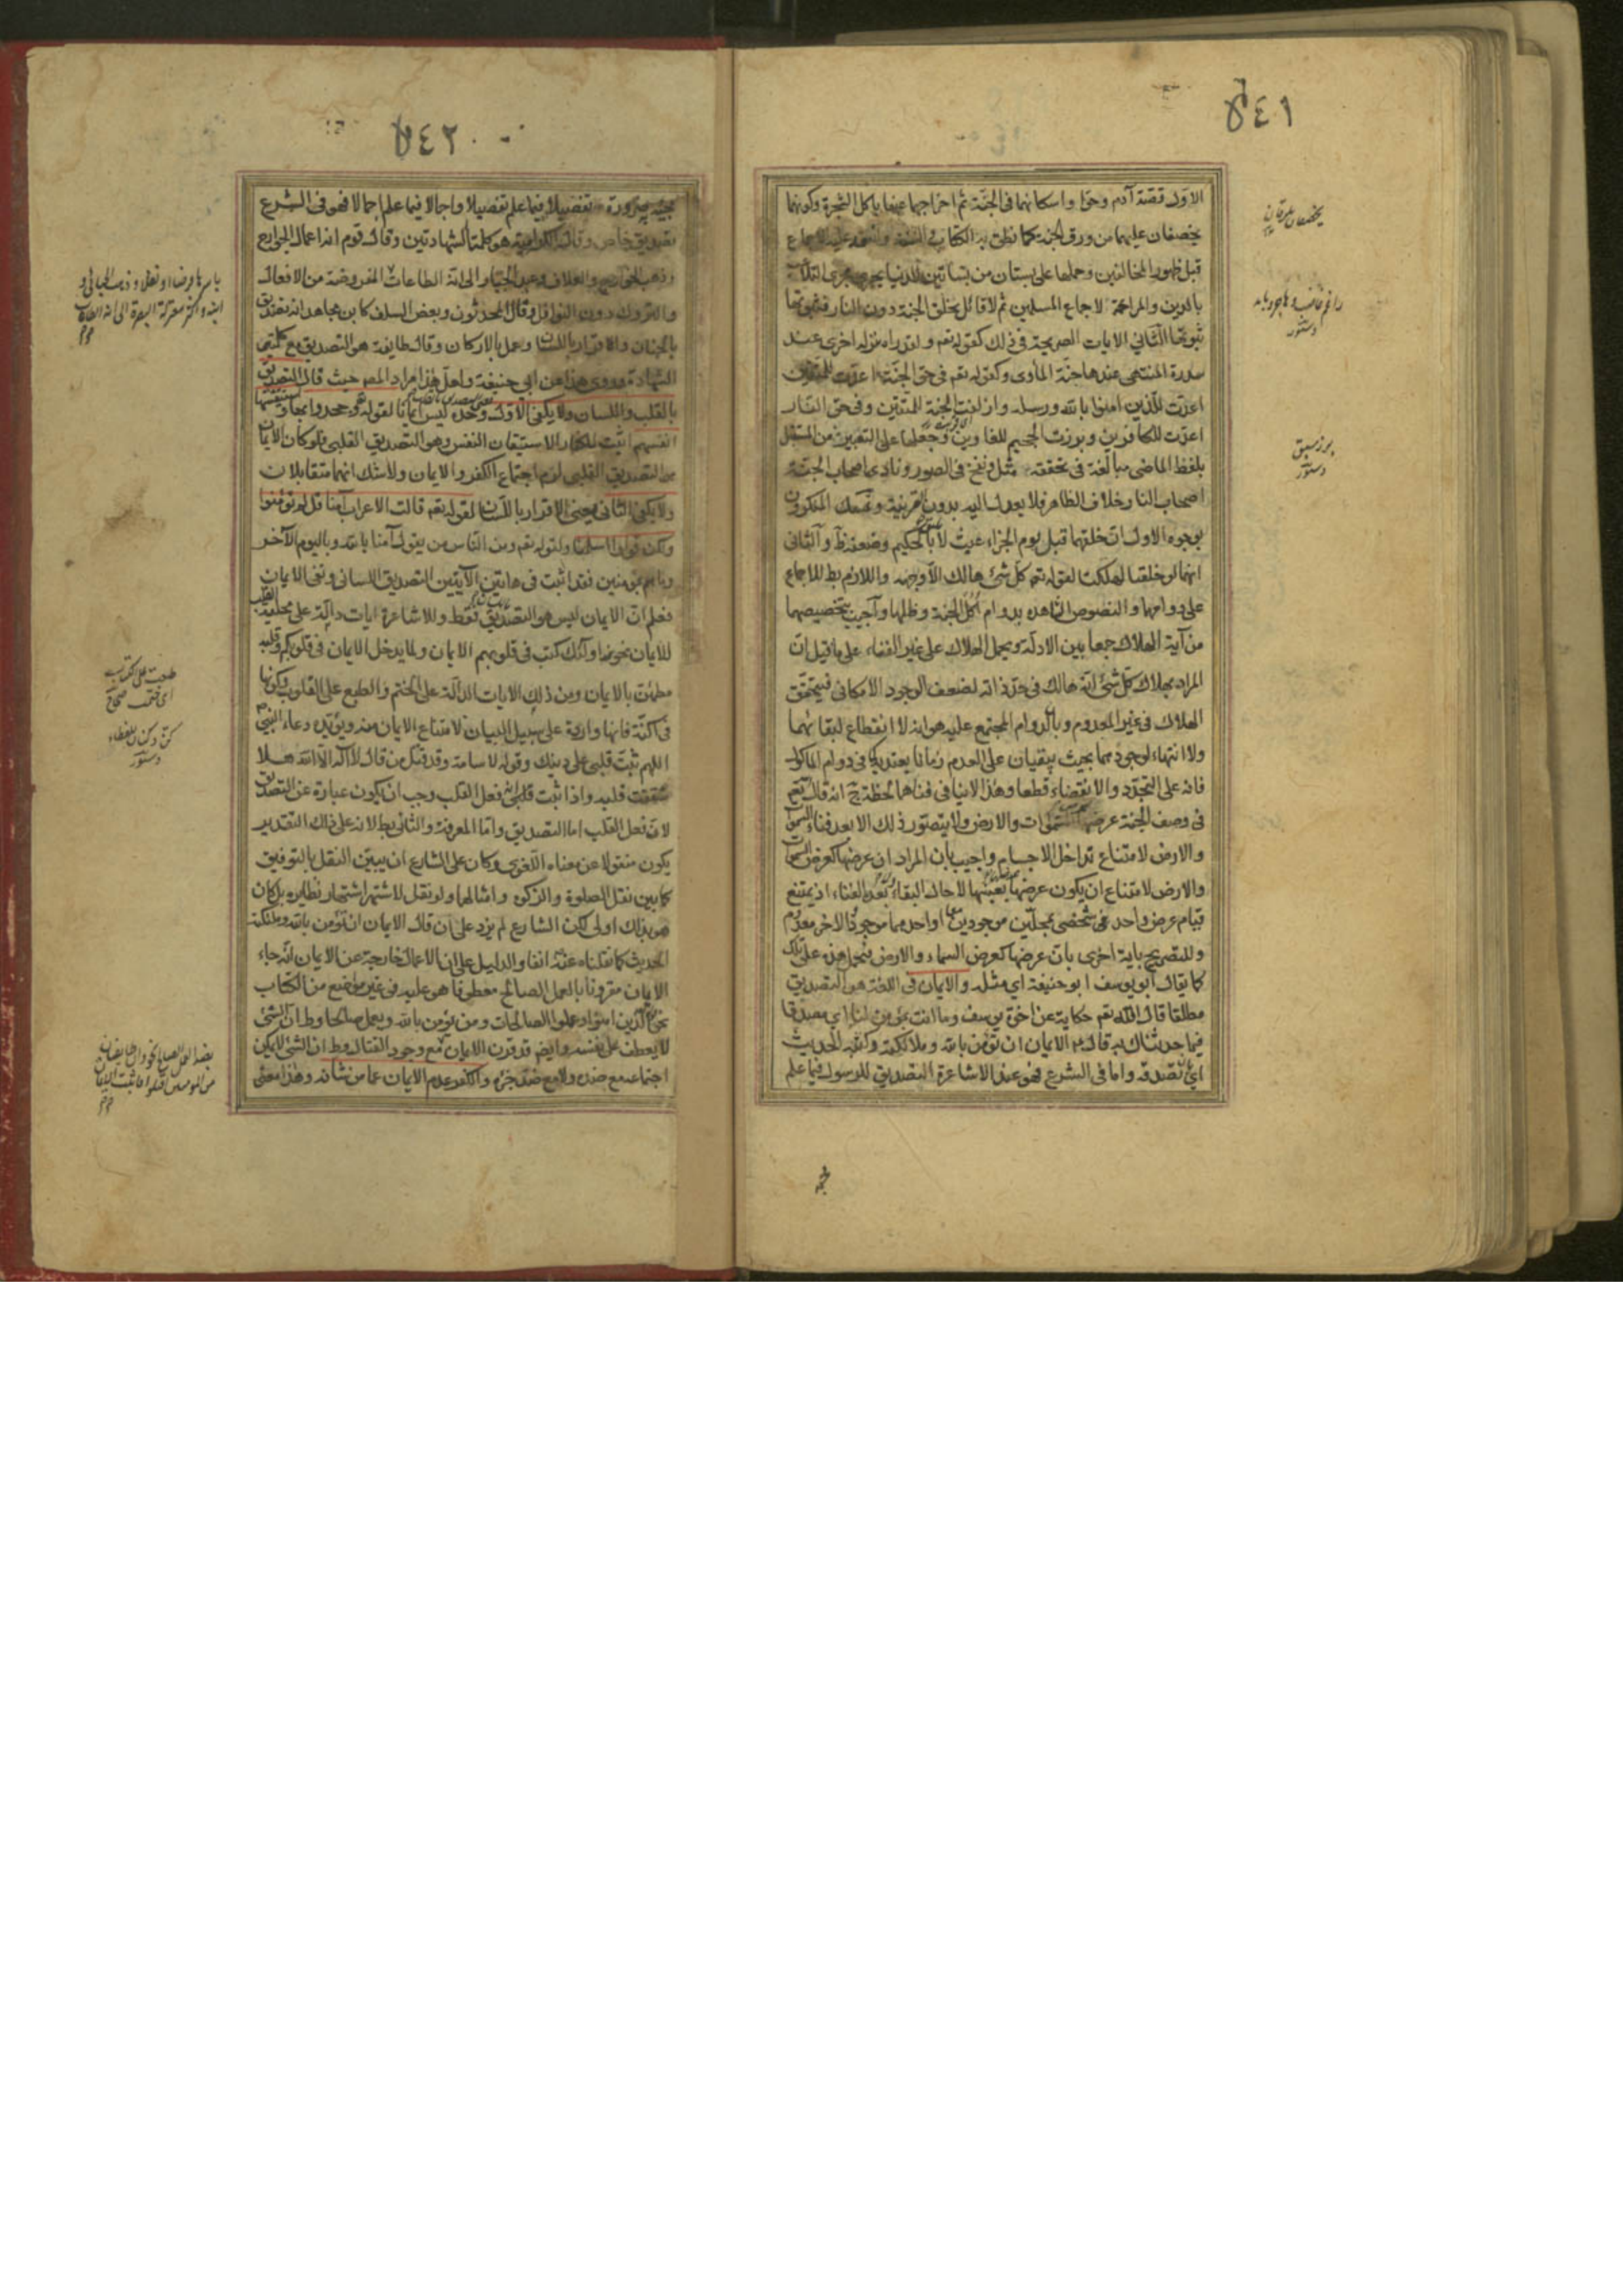 ٥٤١
الاول قصة آدم وحوا واسكانهما فى الجنة ثم اخراجهما عنها باكل الشجرة وكونهما
يخصفان عليهما من ورق الجنة كما نطق به الكتاب والسنة وانعقد عليه الاجماع
قبل ظهور المخالفين وحملها على بستان من بساتين الدنيا يجرى مجرى التلاعب
بالدين والمراغمة لاجماع المسلمين ثم لا قائل بخلق الجنة دون النار فثبوتها
ثبوتها الثانى الايات الصريحة فى ذلك كقوله تعم ولقد راه نزلة اخرى عند
سدرة المنتهى عندها جنة الماوى وكقوله تعم فى حق الجنة اعدت للمتقين
اعدت للذين امنوا بالله ورسله وازلفت الجنة للمتقين وفى حق النار
اعدت للكافرين وبرزت الجحيم للغاوين وحملها على التعبير من المستقبل
بلفظ الماضى مبالغة فى تحققه مثل ونفخ فى الصور ونادى اصحاب الجنة
اصحاب النار خلاف الظاهر فلا يعدل اليه بدون قرينة وتمسك المنكرون
بوجوه الاول ان خلقهما قبل يوم الجزاء عبث لا يليق بالحكيم وضعفه ظ والثانى
انهما لو خلقتا لهلكتا لقوله تعم كل شئ هالك الا وجهه واللازم بط للاجماع
على دوامهما والنصوص الشاهده بدوام اكل الجنة وظلها واجيب بتخصيصهما
من آية الهلاك جمعا بين الادلة وبحمل الهلاك على غير الفناء على ما قيل ان
المراد بهلاك كل شئ انه هالك فى حد ذاته لضعف الوجود الامكانى فيتحقق
الهلاك فى غير المعدوم وبان الدوام المجتمع عليه هو انه لا انقطاع لبقائهما
ولا انتهاء لوجودهما بحيث يبقيان على العدم زمانا يعتد به كما فى دوام الماكول
فانه على التجدد والانقضاء قطعا وهذا لا ينافى فناهما لحظة ج انه قال تعم
فى وصف الجنة عرضها السموات والارض ولا يتصور ذلك الا بعد فناء السموات
والارض لامتناع تداخل الاجسام واجيب بان المراد ان عرضها كعرض السموات
والارض لامتناع ان يكون عرضها بعينها لا حال البقاء ولا بعد الفناء اذ يمتنع
قيام عرض واحد شخصى بمحلين موجودين معا او احدهما موجود والاخر معدوم
وللتصريح باية اخرى بان عرضها كعرض السماء والارض فيحمل هذه على تلك
كما يقال ابو يوسف ابو حنيفة اى مثله والايمان فى اللغة هو التصديق
مطلقا قال الله تعم حكاية عن اخوة يوسف وما انت بمؤمن لنا اى مصدقا
فيما حدثناك به قال عم الايمان ان تؤمن بالله وملائكته وكتبه الحديث
اى تصدقه واما فى الشرع فهو عند الاشاعرة التصديق للرسول فيما علم
يخصفان
دستور
برز سبق
دستور
٥٤٢
مجيئه به ضرورة تفصيلا فيما علم تفصيلا واجمالا فيما علم اجمالا فهو فى الشرع
تصديق خاص وقالت الكرامية هو كلمتا الشهادتين وقال قوم انه اعمال الجوارح
وذهب الخوارج والعلاف وعبد الجبار الى انه الطاعات المفروضة من الافعال
والتروك دون النوافل وقال المحدثون وبعض السلف كابن مجاهد انه تصديق
بالجنان والاقرار باللسان وعمل بالاركان وقال طايفة هو التصديق مع كلمتى
الشهادة وروى هذا عن ابى حنيفة ولعل هذا مراد المصر حيث قال التصديق
بالقلب واللسان ولا يكفى الاول وحده ليس ايمانا لقوله تعم وجحدوا بها واستيقنتها
انفسهم اثبت للكفار الاستيقان النفس وهو التصديق القلبى فلو كان الايمان
هو التصديق القلبى لزم اجتماع الكفر والايمان ولا شك انهما متقابلان
ولا يكفى الثانى يعنى الاقرار باللسان لقوله تعم قالت الاعراب آمنا قل لم تؤمنوا
ولكن قولوا اسلمنا ولقوله تعم ومن الناس من يقول آمنا بالله وباليوم الآخر
وما هم بمؤمنين فقد اثبت فى هاتين الآيتين التصديق اللسانى ونفى الايمان
فعلم ان الايمان ليس هو التصديق فقط وللاشاعرة ايات دالة على محلية القلب
للايمان نحو اولئك كتب فى قلوبهم الايمان ولما يدخل الايمان فى قلوبكم وقلبه
مطمئن بالايمان ومن ذلك الايات الدالة على الختم والطبع على القلوب وكونها
فى اكنة فانها واردة على سبيل البيان لامتناع الايمان منه ويؤيده دعاء النبى
اللهم ثبت قلبى على دينك وقوله لاسامة وقد قتل من قال لا اله الا الله هلا
شققت قلبه واذا ثبت انه فعل القلب وجب ان يكون عبارة عن التصديق
لان فعل القلب اما التصديق واما المعرفة والثانى بط لانه على ذلك التقدير
يكون منقولا عن معناه اللغوى وكان على الشارع ان يبين النقل بالتوقيف
كما بين نقل الصلوة والزكوة وامثالهما ولو نقل لاشتهر اشتهار نظايره بل كان
هو بذلك اولى لكن الشارع لم يزد على ان قال الايمان ان تؤمن بالله وملئكته
الحديث كما نقلناه عنه انفا والدليل على ان الاعمال خارجة عن الايمان انه جاء
الايمان مقرونا بالعمل الصالح معطوفا هو عليه فى غير موضع من الكتاب
نحو الذين امنوا وعملوا الصالحات ومن يؤمن بالله ويعمل صالحا وظ ان الشئ
لا يعطف على نفسه وايضم قد قرن الايمان مع وجود القتال وظ ان الشئ لا يمكن
اجتماعه مع ضده ولا مع ضد جزءه والكفر عدم الايمان عما من شانه وهذا معنى
دستور